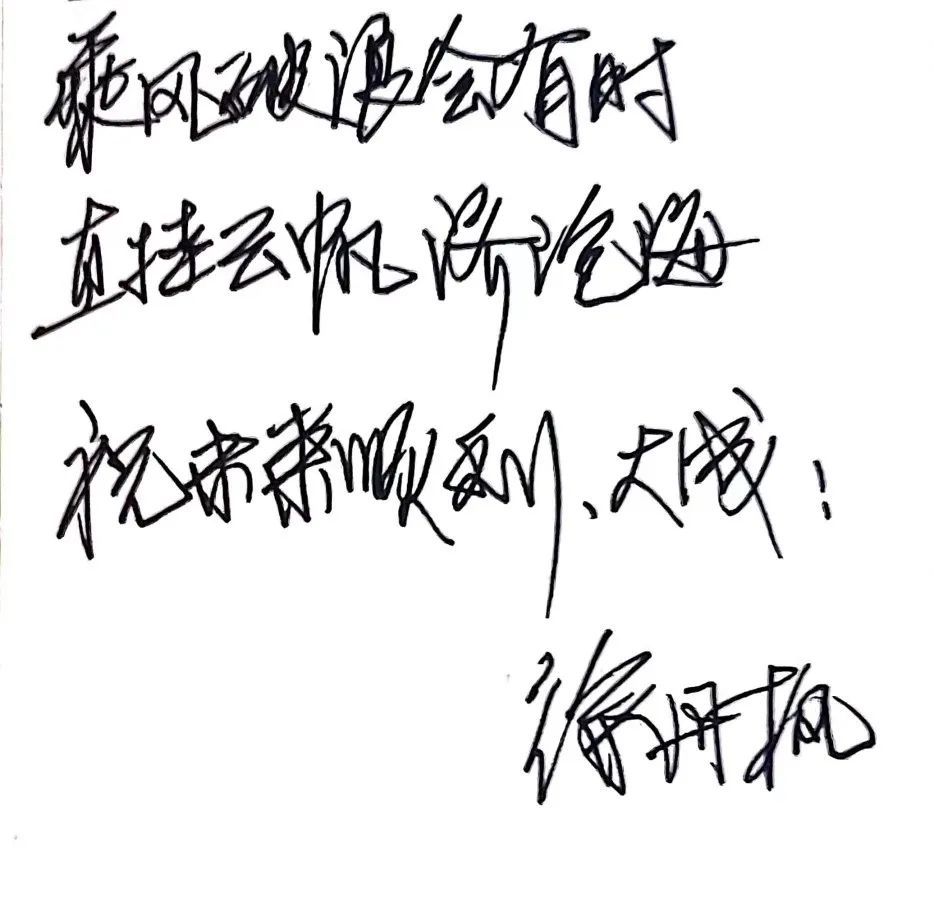 乘风破浪会有时
直挂云帆济沧海
祝未来顺利、大成！
徐丹枫